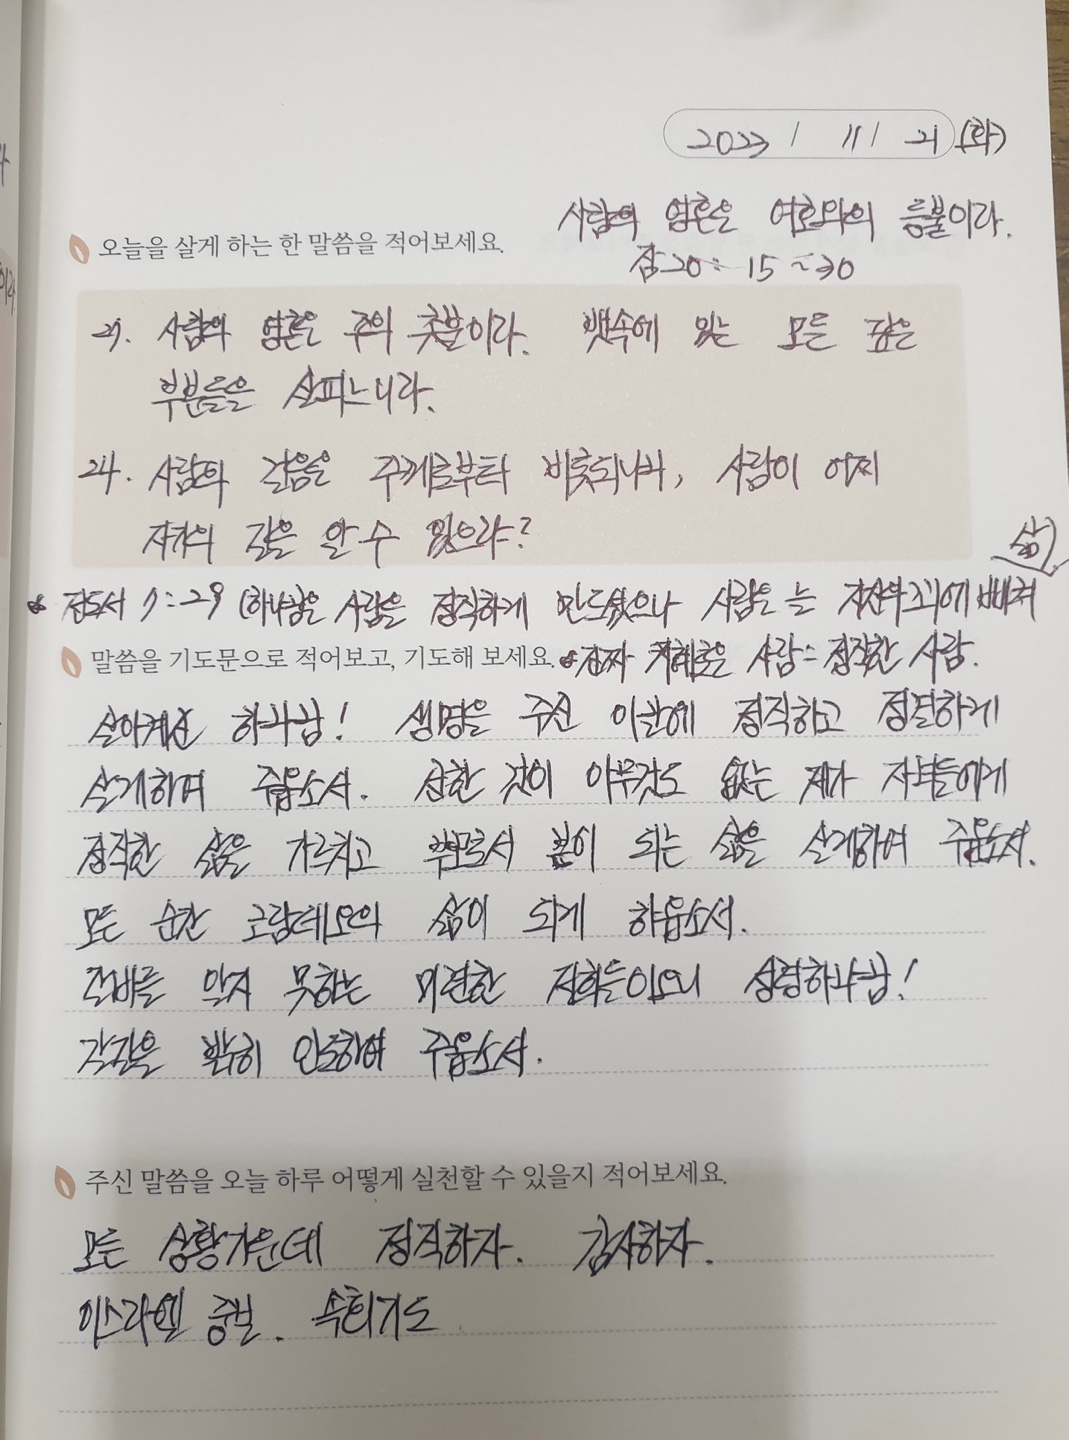 2023 / 11 / 21 (화)
사람의 영혼은 여호와의 등불이라.
오늘을 살게 하는 한 말씀을 적어보세요.
잠20: 15~30
27. 사람의 영혼은 주의 촛불이라. 뱃속에 있는 모든 깊은
부분들을 살피느니라.
24. 사람의 걸음은 주께로부터 비롯되나니, 사람이 어찌
자기의 길을 알 수 있으랴?
삶
전도서 7:29 (하나님은 사람을 정직하게 만드셨으나 사람은 는 빠져
말씀을 기도문으로 적어보고, 기도해 보세요.
진짜 지혜로운 사람=정직한 사람.
살아계신 하나님! 생명을 주신 이 땅에 정직하고 정결하게
살게하여 주옵소서. 선한 것이 아무것도 없는 제가 자녀들에게
정직한 삶을 가르치고 부모로서 본이 되는 삶을 살게하여 주옵소서.
모든 순간 코람데오의 삶이 되게 하옵소서.
알지 못하는 미련한 저희들이오니 성령하나님!
각각을 인도하여 주옵소서.
주신 말씀을 오늘 하루 어떻게 실천할 수 있을지 적어보세요.
모든 상황가운데 정직하자. 감사하자.
이스라엘 중보. 속회기도